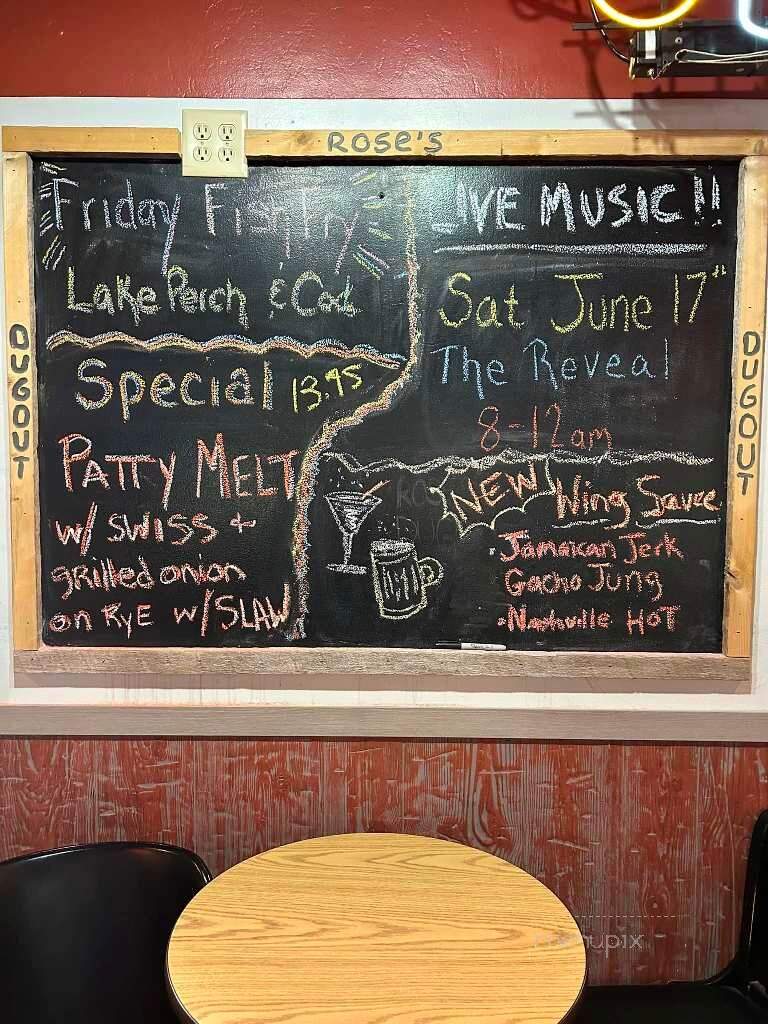 ROSE'S
DUGOUT
Friday Fish Fry
Lake Perch & Cod
Special 13.95
PATTY MELT
w/ SWISS +
grilled onion
on RyE w/SLAW
LIVE MUSIC!!
Sat June 17th
The Reveal
8-12am
NEW Wing Sauce
• Jamaican Jerk
Gacho Jung
• Nashville HOT
DUGOUT
menupix